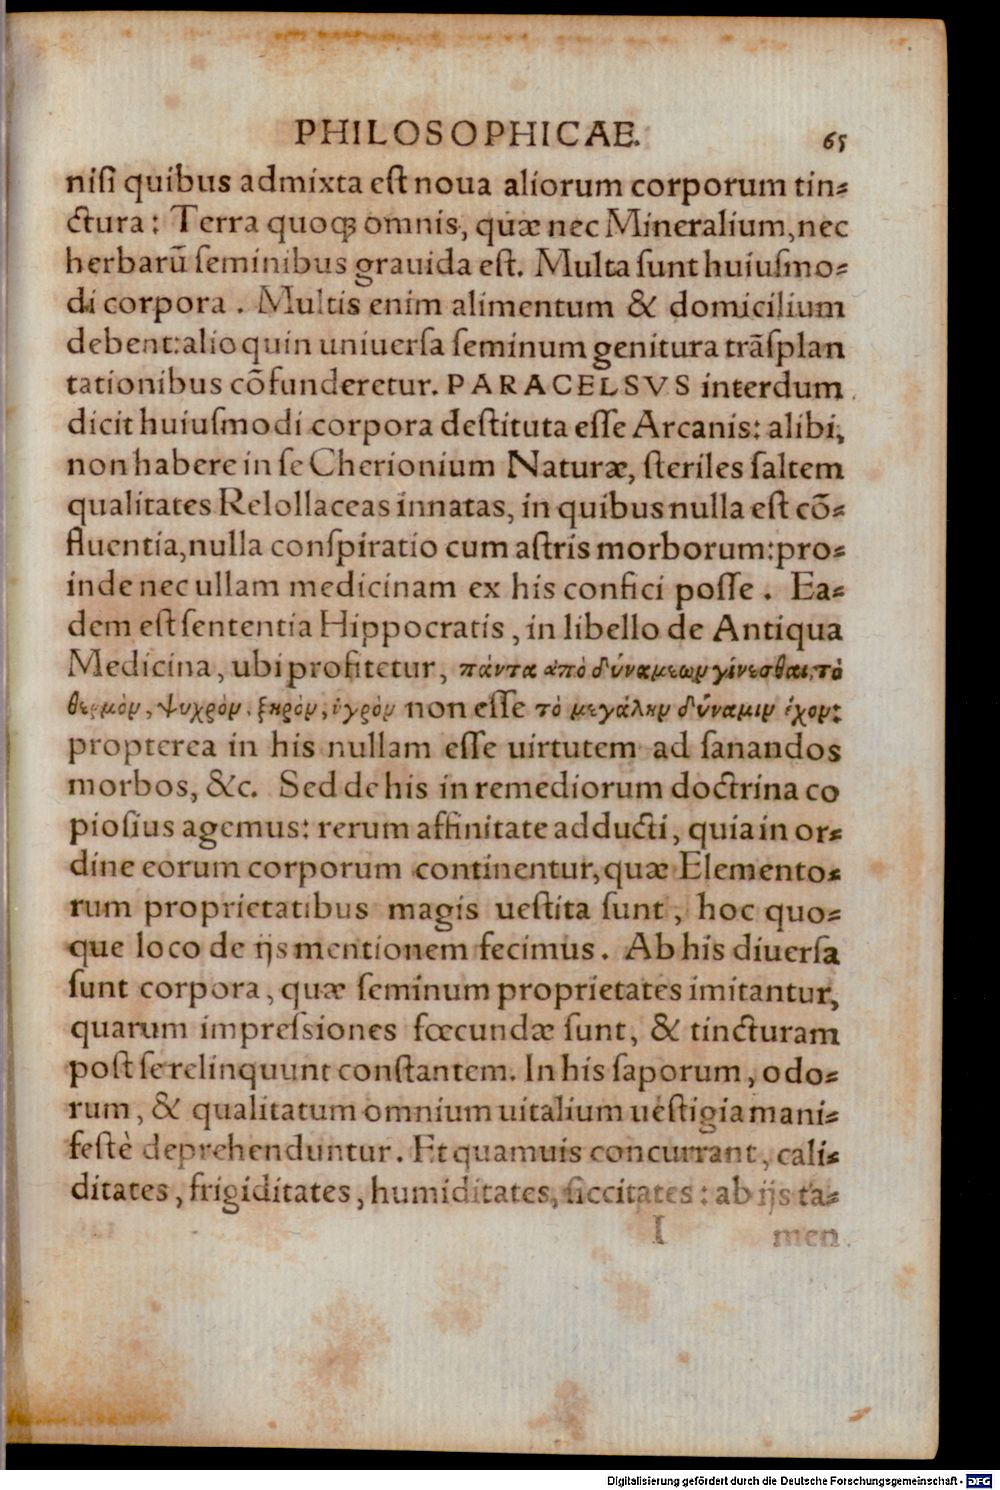 PHILOSOPHICAE. 65
niſi quibus admixta eſt noua aliorum corporum tin⸗
ctura: Terra quoqꝫ omnis, quæ nec Mineralium, nec
herbarũ ſeminibus grauida eſt. Multa ſunt huiuſmo⸗
di corpora. Multis enim alimentum & domicilium
debent: alioquin uniuerſa ſeminum genitura trãſplan
tationibus cõfunderetur. PARACELSVS interdum
dicit huiuſmodi corpora deſtituta eſſe Arcanis: alibi,
non habere in ſe Cherionium Naturæ, ſteriles ſaltem
qualitates Relollaceas innatas, in quibus nulla eſt cõ⸗
fluentia, nulla conſpiratio cum aſtris morborum: pro⸗
inde nec ullam medicinam ex his confici poſſe. Ea⸗
dem eſt ſententia Hippocratis, in libello de Antiqua
Medicina, ubi profitetur, πάντα ἀπὸ δύναμεων γίνεσθαι, τὸ
θερμὸν, ψυχρὸν, ξηρὸν, ὑγρὸν non eſſe τὸ μεγάλην δύναμιν ἔχον:
propterea in his nullam eſſe uirtutem ad ſanandos
morbos, &c. Sed de his in remediorum doctrina co
pioſius agemus: rerum affinitate adducti, quia in or⸗
dine eorum corporum continentur, quæ Elemento⸗
rum proprietatibus magis ueſtita ſunt, hoc quo⸗
que loco de ijs mentionem fecimus. Ab his diuerſa
ſunt corpora, quæ ſeminum proprietates imitantur,
quarum impreſsiones fœcundæ ſunt, & tincturam
poſt ſe relinquunt conſtantem. In his ſaporum, odo⸗
rum, & qualitatum omnium uitalium ueſtigia mani⸗
feſtè deprehenduntur. Et quamuis concurrant, cali⸗
ditates, frigiditates, humiditates, ſiccitates: ab ijs ta⸗
I men
Digitalisierung gefördert durch die Deutsche Forschungsgemeinschaft - DFG